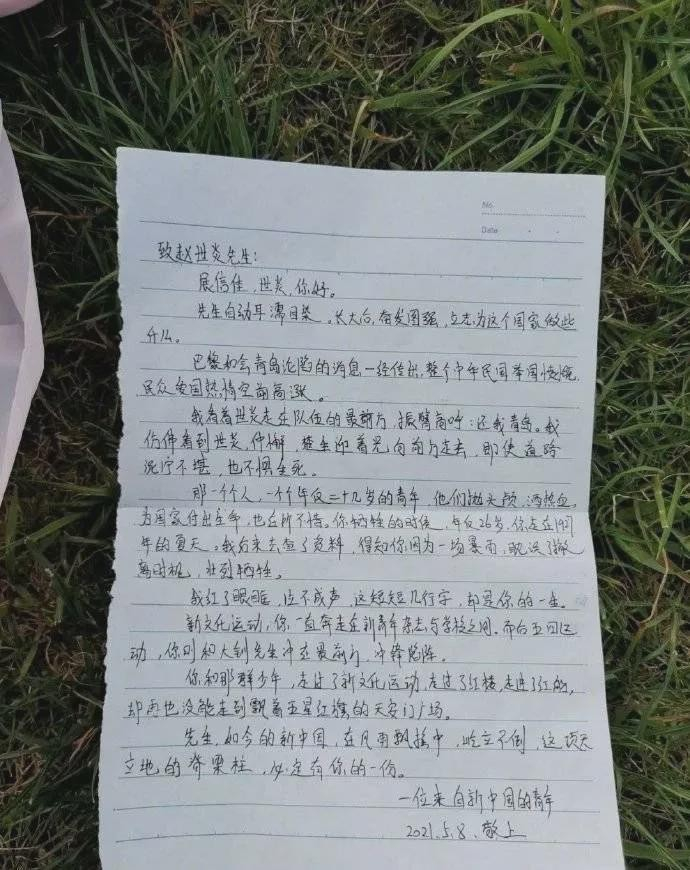 No.
Date
致赵世炎先生：
展信佳，世炎，你好。
先生自幼耳濡目染。长大后，奋发图强，立志为这个国家做些
什么。
巴黎和会青岛沦陷的消息一经传出，整个中华民国举国愤慨，
民众爱国热情空前高涨。
我看着世炎走在队伍的最前方，振臂高呼：还我青岛。我
仿佛看到世炎，仲澥，楚生迎着光向前方走去，即使道路
泥泞不堪，也不惧生死。
那一个个人，一个个年仅二十几岁的青年，他们抛头颅，洒热血，
为国家付出生命，也在所不惜。你牺牲的时候，年仅26岁，你走在1927
年的夏天。我后来去查了资料，得知你因为一场暴雨，耽误了撤
离时机，壮烈牺牲。
我红了眼眶，泣不成声，这短短几行字，却是你的一生。
新文化运动，你一直奔走在新青年杂志与学校之间。而后五四运
动，你则和大钊先生冲在最前方，冲锋陷阵。
你和那群少年，走过了新文化运动，走过了红楼，走进了红船，
却再也没能走到飘着五星红旗的天安门广场。
先生，如今的新中国，在风雨飘摇中，屹立不倒，这顶天
立地的脊梁柱，必定有你的一份。
一位来自新中国的青年
2021.5.8.敬上